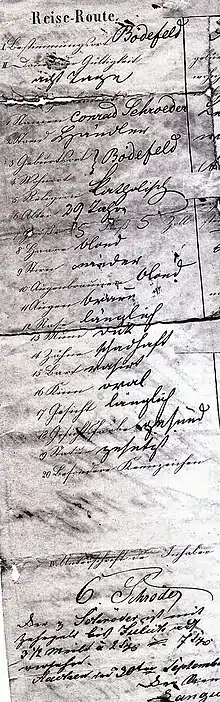 Reise-Route.
I. Bestimmungsort Bödefeld
II. Dauer der Gültigkeit
acht Tage
1 Namen Conrad Schroeder
2 Stand Händler
3 Geburtsort } Bödefeld
4 Wohnort
5 Religion Katholisch
6 Alter 29 Jahr
5 Fuß 5 Zoll
8 Haare blond
9 Stirn
10 Augenbraunen blond
11 Augen braun
12 Nase länglich
13 Mund dick
14 Zähne schadhaft
15 Bart rasirt
16 Kinn oval
17 Gesicht länglich
18 Gesichtsfarbe gesund
19 Statur gesetzt
20 Besondere Kennzeichen
III. Unterschrift des Inhabers
C Schröder
Der p Schröder ist mit
bis Jülich
Aachen den 30ten September